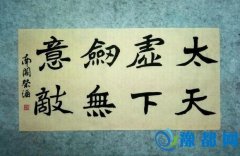 太虛劍意
天下無敵
南閣祭酒
豫都网